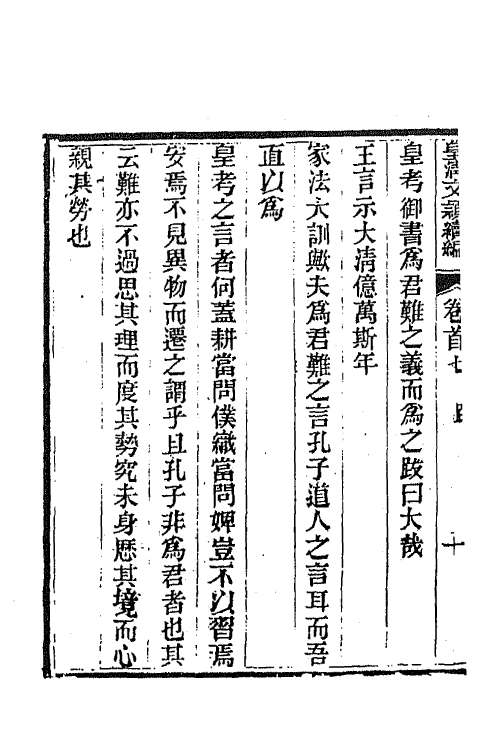 皇清文穎續編 卷首七 跋 十
皇考御書為君難之義而為之跋曰大哉
王言示大清億萬斯年
家法大訓歟夫為君難之言孔子道人之言耳而吾
直以為
皇考之言者何蓋耕當問僕織當問婢豈不以習焉
安焉不見異物而遷之謂乎且孔子非為君者也其
云難亦不過思其理而度其勢究未身歷其境而心
親其勞也